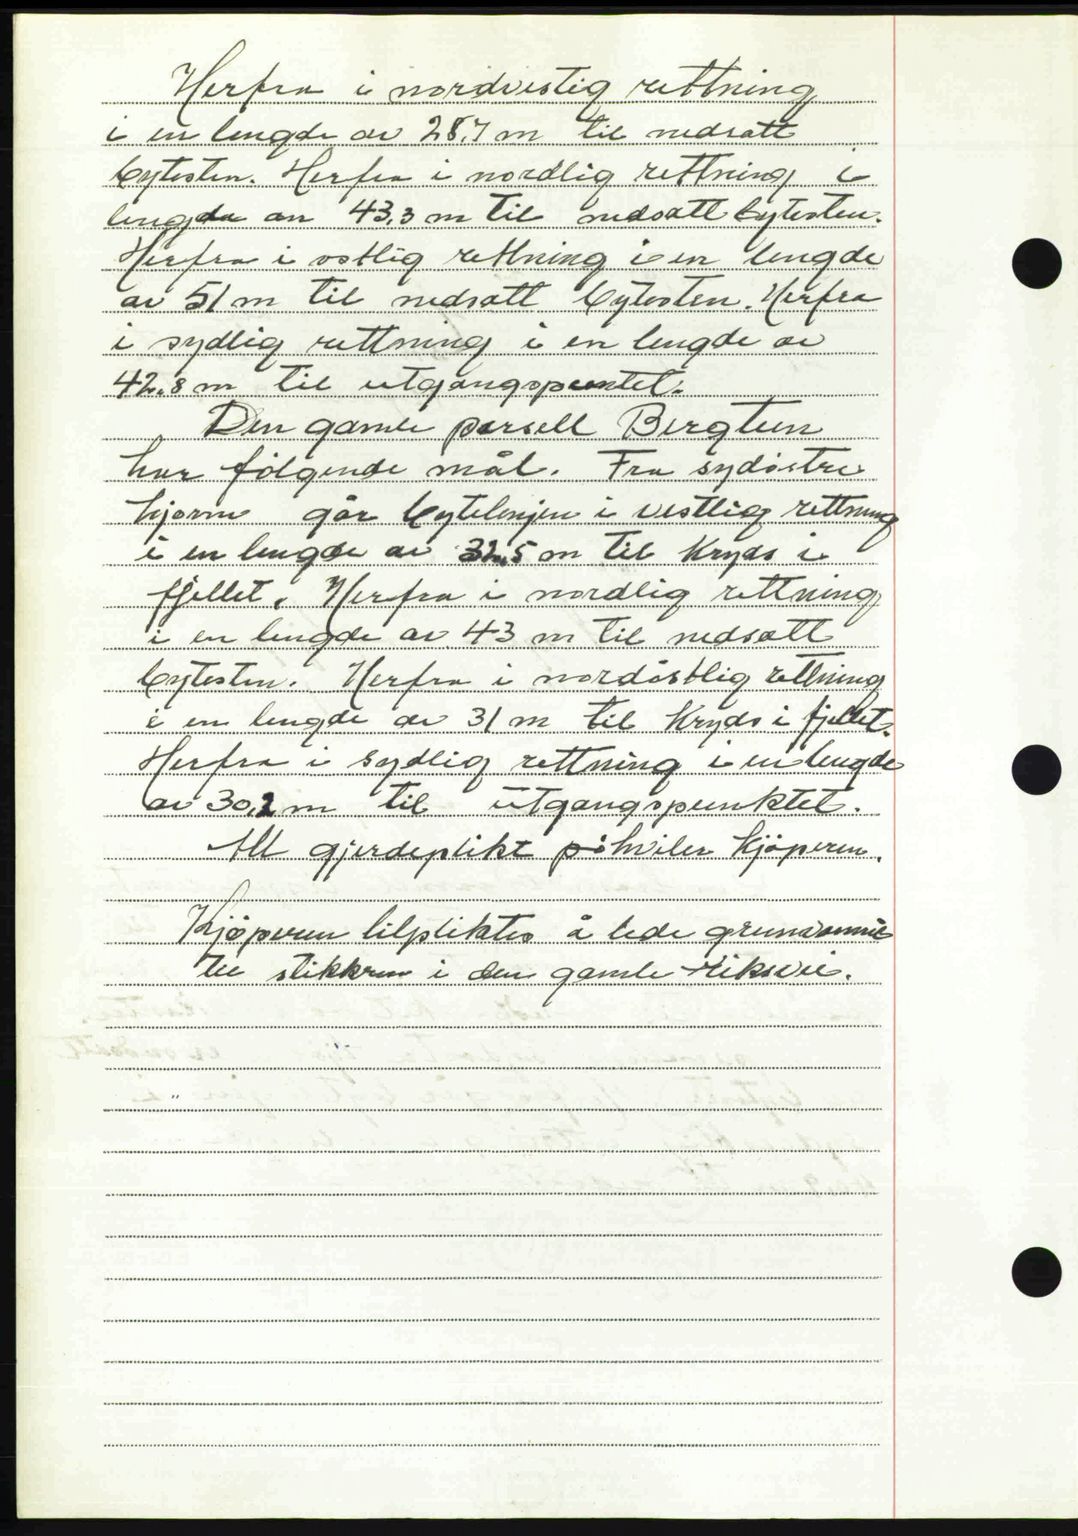 Herfra i nordvestig rettning
i en lengde av 28,7 m til nedsatt
bytesten. Herfra i nordlig rettning i
lengde av 43,3 m til nedsatt bytesten.
Herfra i ostlig rettning i en lengde
av 51 m til nedsatt bytesten. Herfra
i sydlig rettning i en lengde av
42,8 m til utgangspuntet.
Den gamle parsell Bergtun
har følgende mål. Fra sydöstre
hjorne går bytelinjen i vestlig rettning
i en lengde av 32,5 m til Kryds i
fjellet. Herfra i nordlig rettning
i en lengde av 43 m til nedsatt
bytesten. Herfra i nordöstlig rettning
i en lengde av 31 m til Kryds i fjellet.
Herfra i sydlig rettning i en lengde
av 30,2 m til utgangspunktet.
All gjerdeplikt påhviler kjöperen.
Kjøperen tilpliktes å lede
til stikkren i den gamle riksvei.